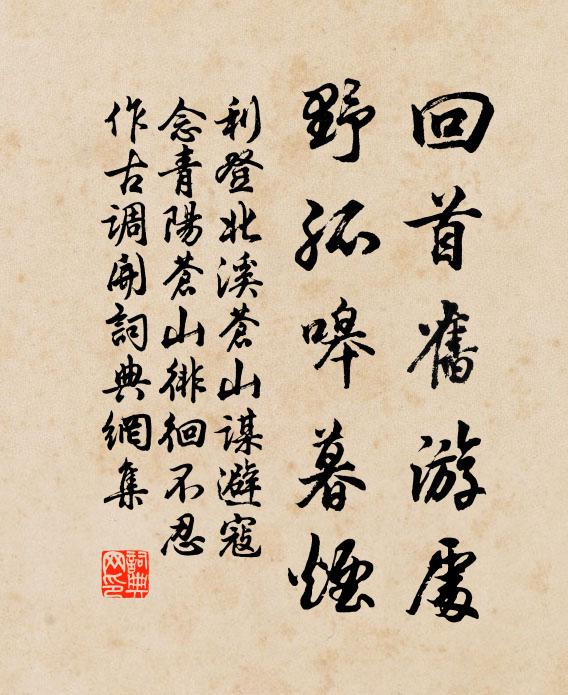 回首舊游處
野狐嗥暮煙
利登北溪蒼山謀避寇
念青陽蒼山徘徊不忍
作古調開詞典網集
詞典
网印